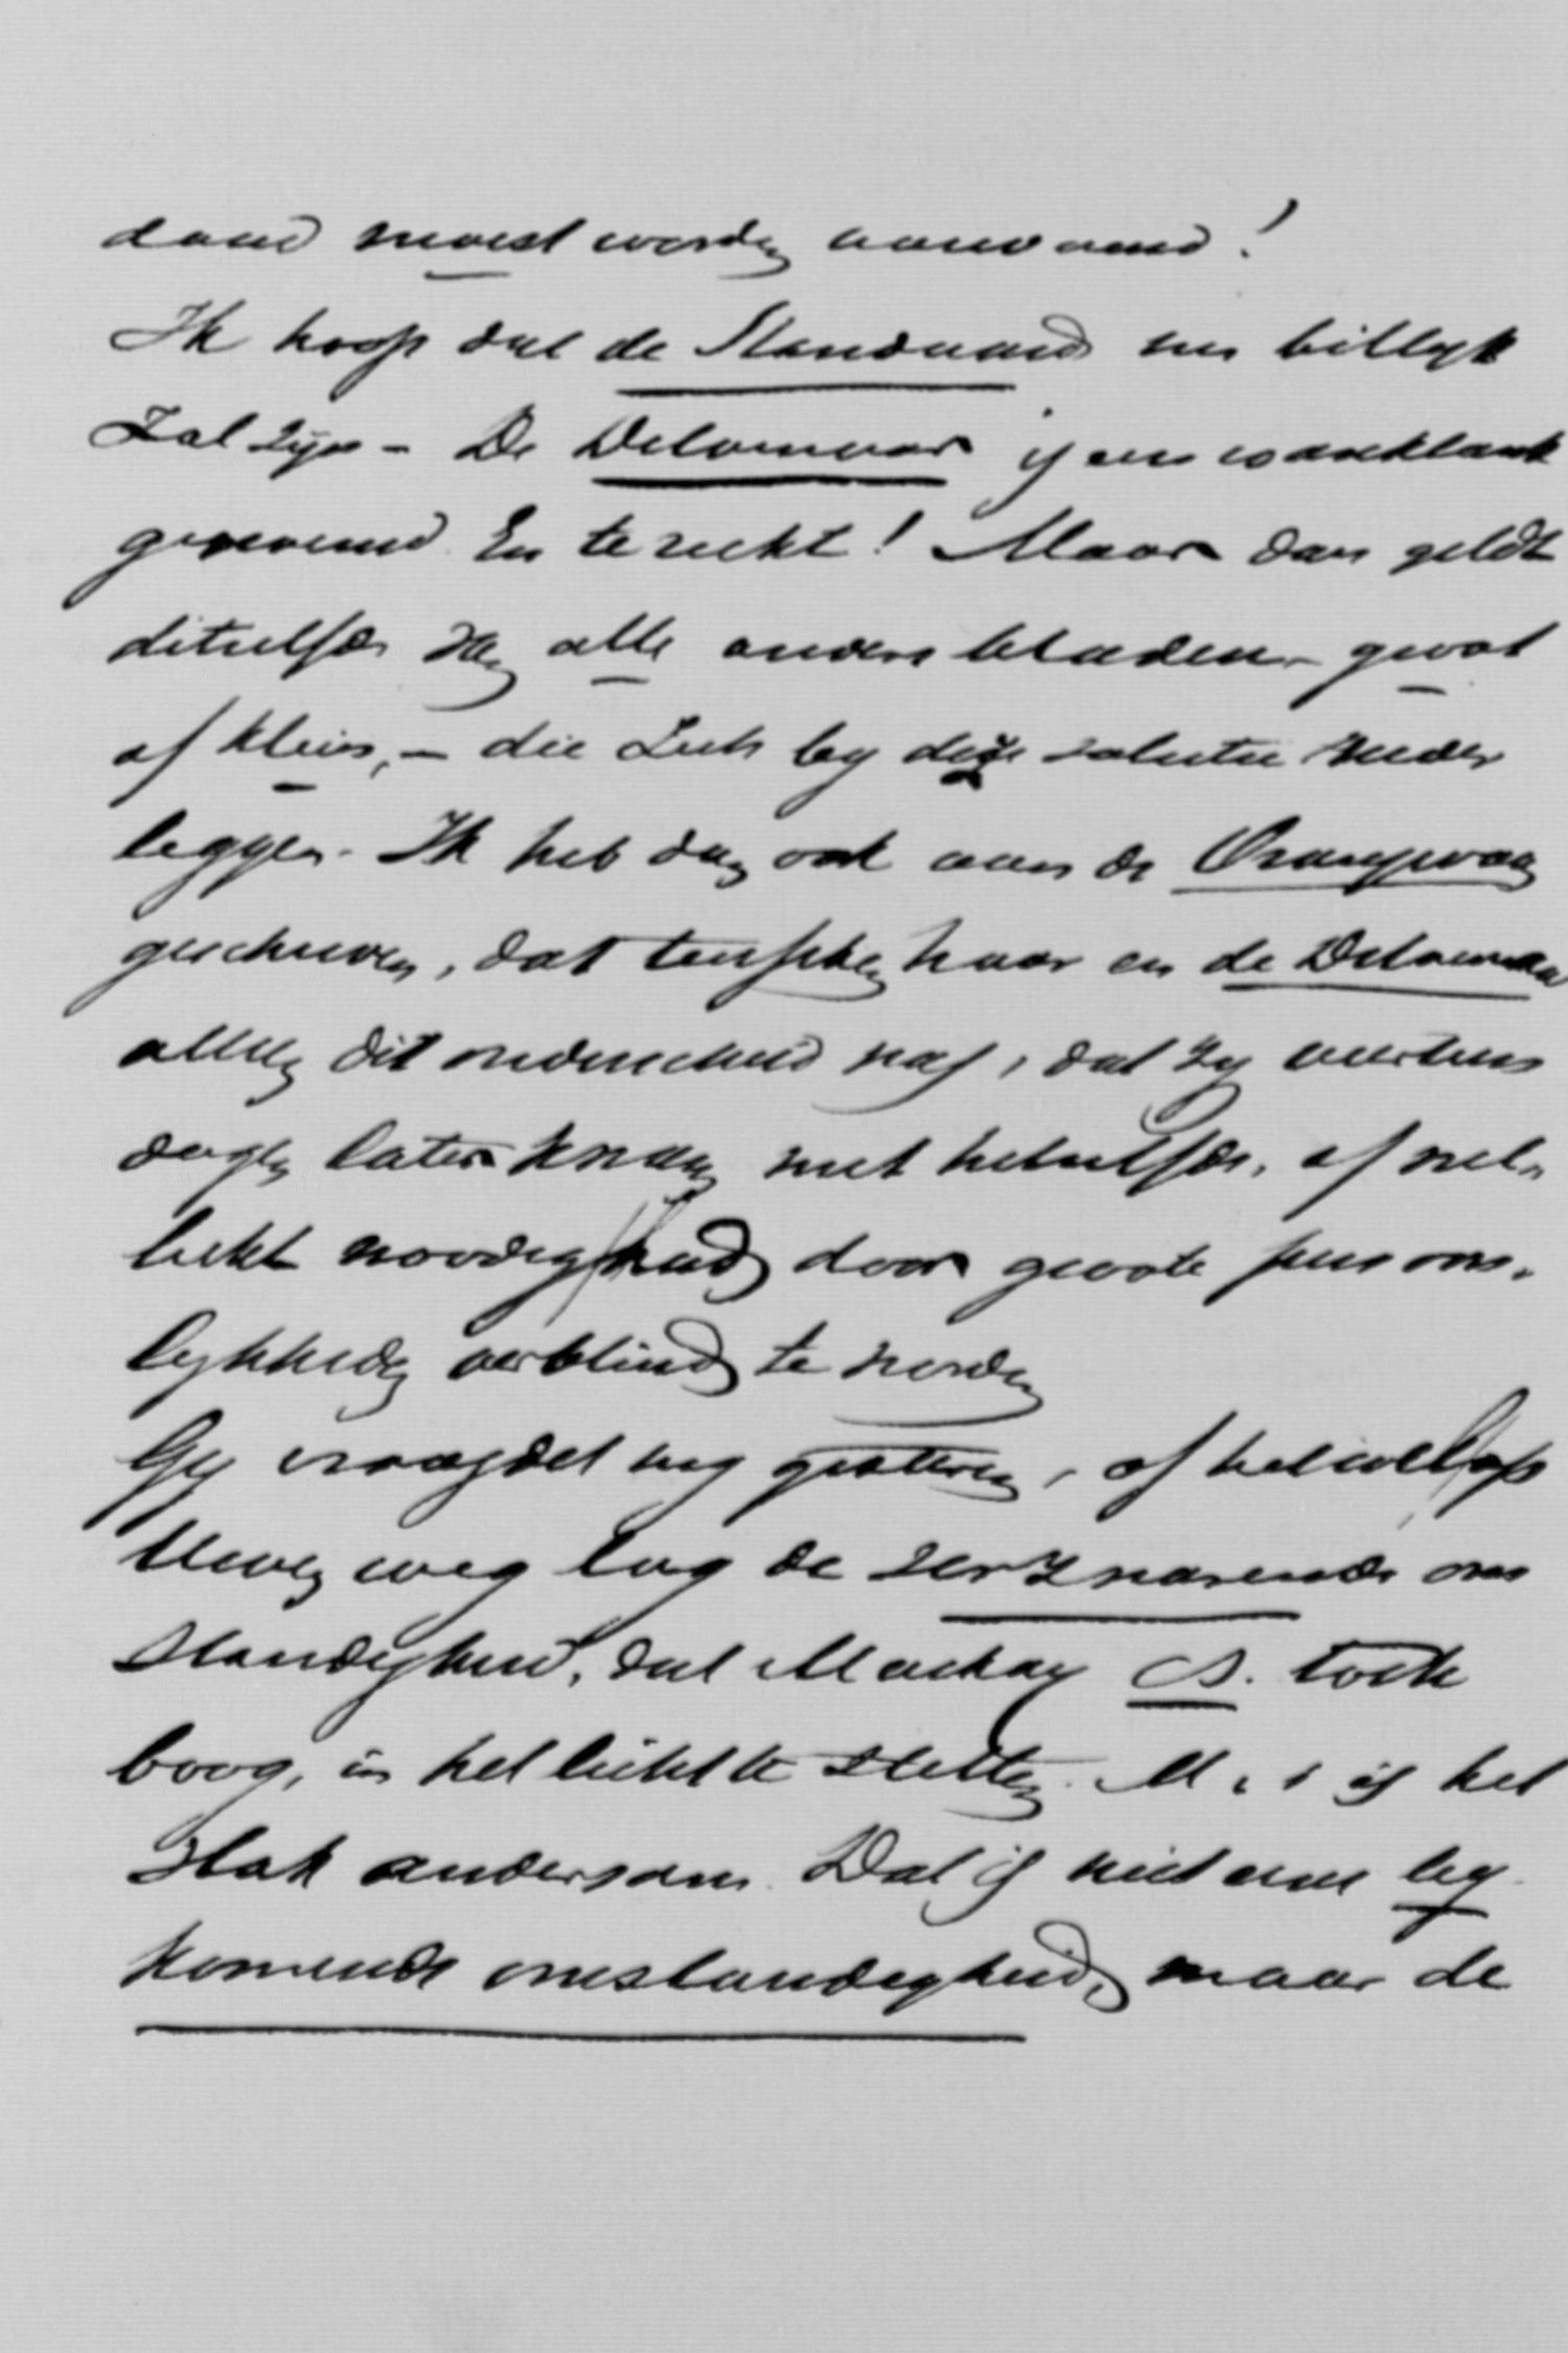 daad moest worden aanvaard!
Ik hoop dat de Standaard nu billyk
Zal zyn - De Delvenaar is een wanklank
genoemd En te recht! Maar dan geldt
ditzelfde van alle andere bladen - groot
of klein, - die zich by deze solutie neder
leggen. Ik heb dan ook aan de Oranjevaan
geschreven, dat tusschen haar en de
alleen dit onderscheid was, dat zy
dagen later kwam met hetzelfde, of wel-
licht noodig had door groote persoon-
lykheden verblind te worden
Gy vraagdet my gisteren, of het
weg lag de verzwarende om
standigheid, dat Mackay cs. toch
boog, in het licht te stellen. M. i is het
Vlak andersom. Dat is niet eene by
komende omstandigheid, maar de